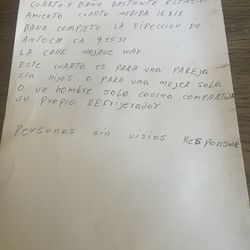 CUARTO Y BAÑO BASTANTE ESTACIO
AMIENTO CUARTO MEDIDA 18 X 18
BAÑO COMPLETO LA DIRECCION DE
ANTIOCH CA 94531
LA CALLE MOJAVE WAY
ESTE CUARTO ES PARA UNA PAREJA
SIN HIJOS O PARA UNA MUJER SOLA
O UN HOMBRE SOLO COSINA COMPARTIDA
SU PROPIO REFRIJERADOR
PERSONAS SIN VISIOS RESPONSABLE